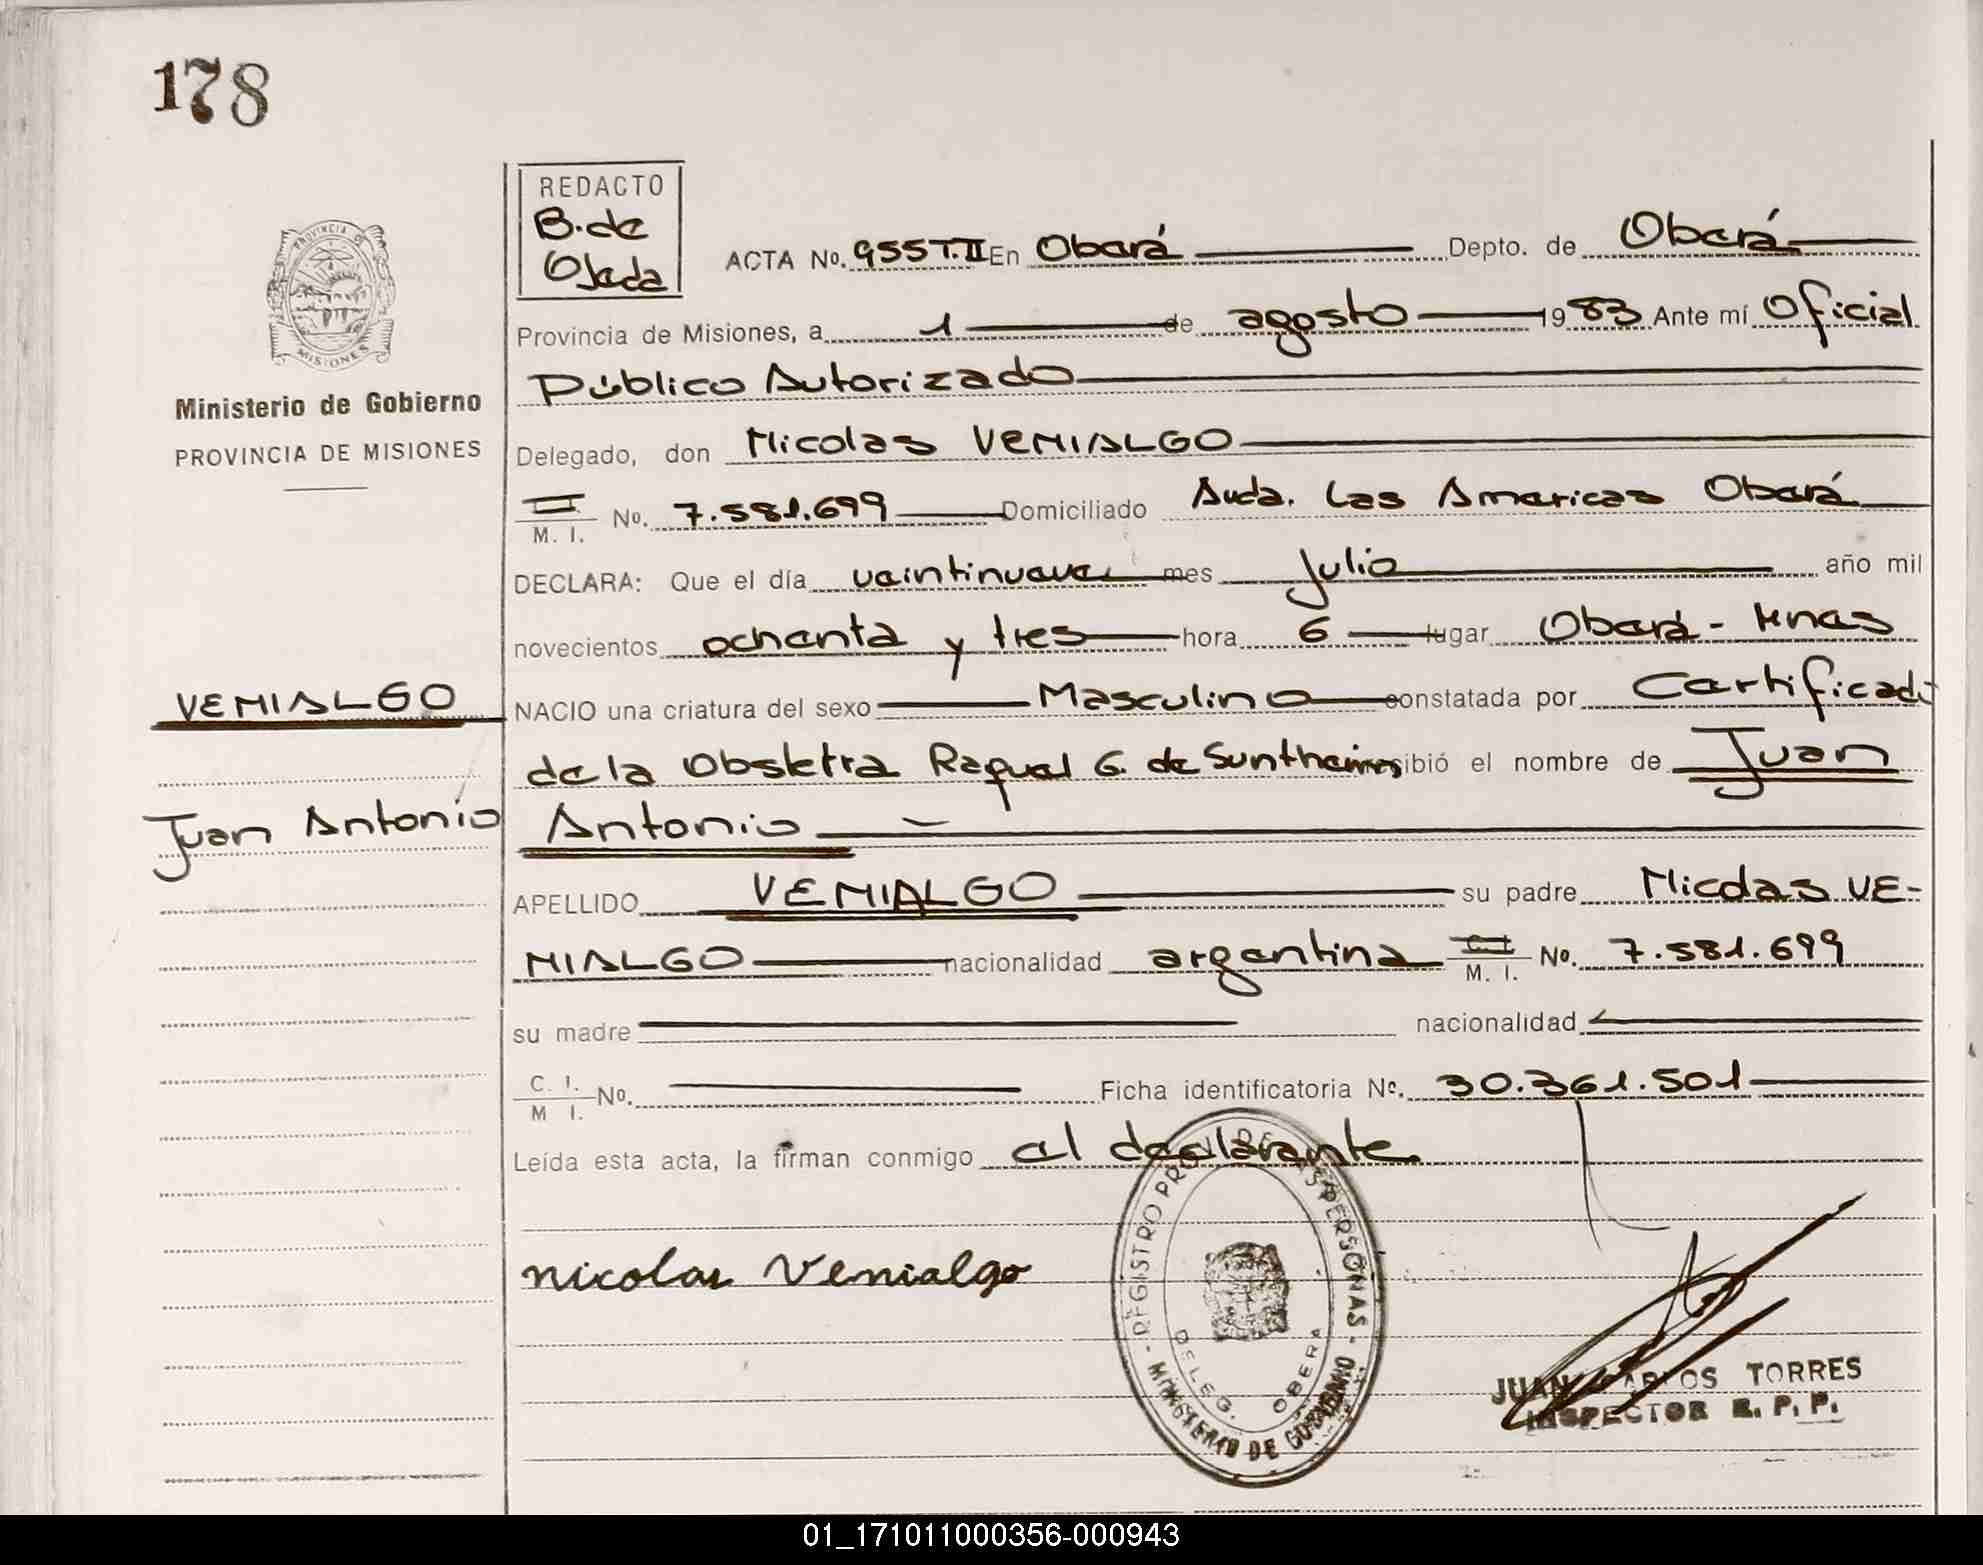 178
REDACTO
B. de
Ojeda
ACTA No. 955 T. II En Oberá Depto. de Oberá
Provincia de Misiones, a 1 de agosto 1983 Ante mí Oficial
Público Autorizado
Ministerio de Gobierno
PROVINCIA DE MISIONES
Delegado, don Nicolas VENIALGO
M. I. No. 7.581.699 Domiciliado Avda. Las Americas Oberá
DECLARA: Que el día veintinueve mes Julio año mil
novecientos ochenta y tres hora 6 lugar Oberá - Mnes
VENIALGO
NACIO una criatura del sexo Masculino constatada por Certificado
de la Obstetra Raquel G. de Suntheim recibió el nombre de Juan
Juan Antonio
Antonio
APELLIDO VENIALGO su padre Nicolas VE-
NIALGO nacionalidad argentina C. I. M. I. No. 7.581.699
su madre nacionalidad
C. I. M I. No. Ficha identificatoria No. 30.361.501
Leída esta acta, la firman conmigo el declarante
nicolas Venialgo
REGISTRO PROV. DE LAS PERSONAS - MINISTERIO DE GOBIERNO
DELEG. OBERA
JUAN CARLOS TORRES
INSPECTOR R. P. P.
PROVINCIA DE
MISIONES
01_171011000356-000943